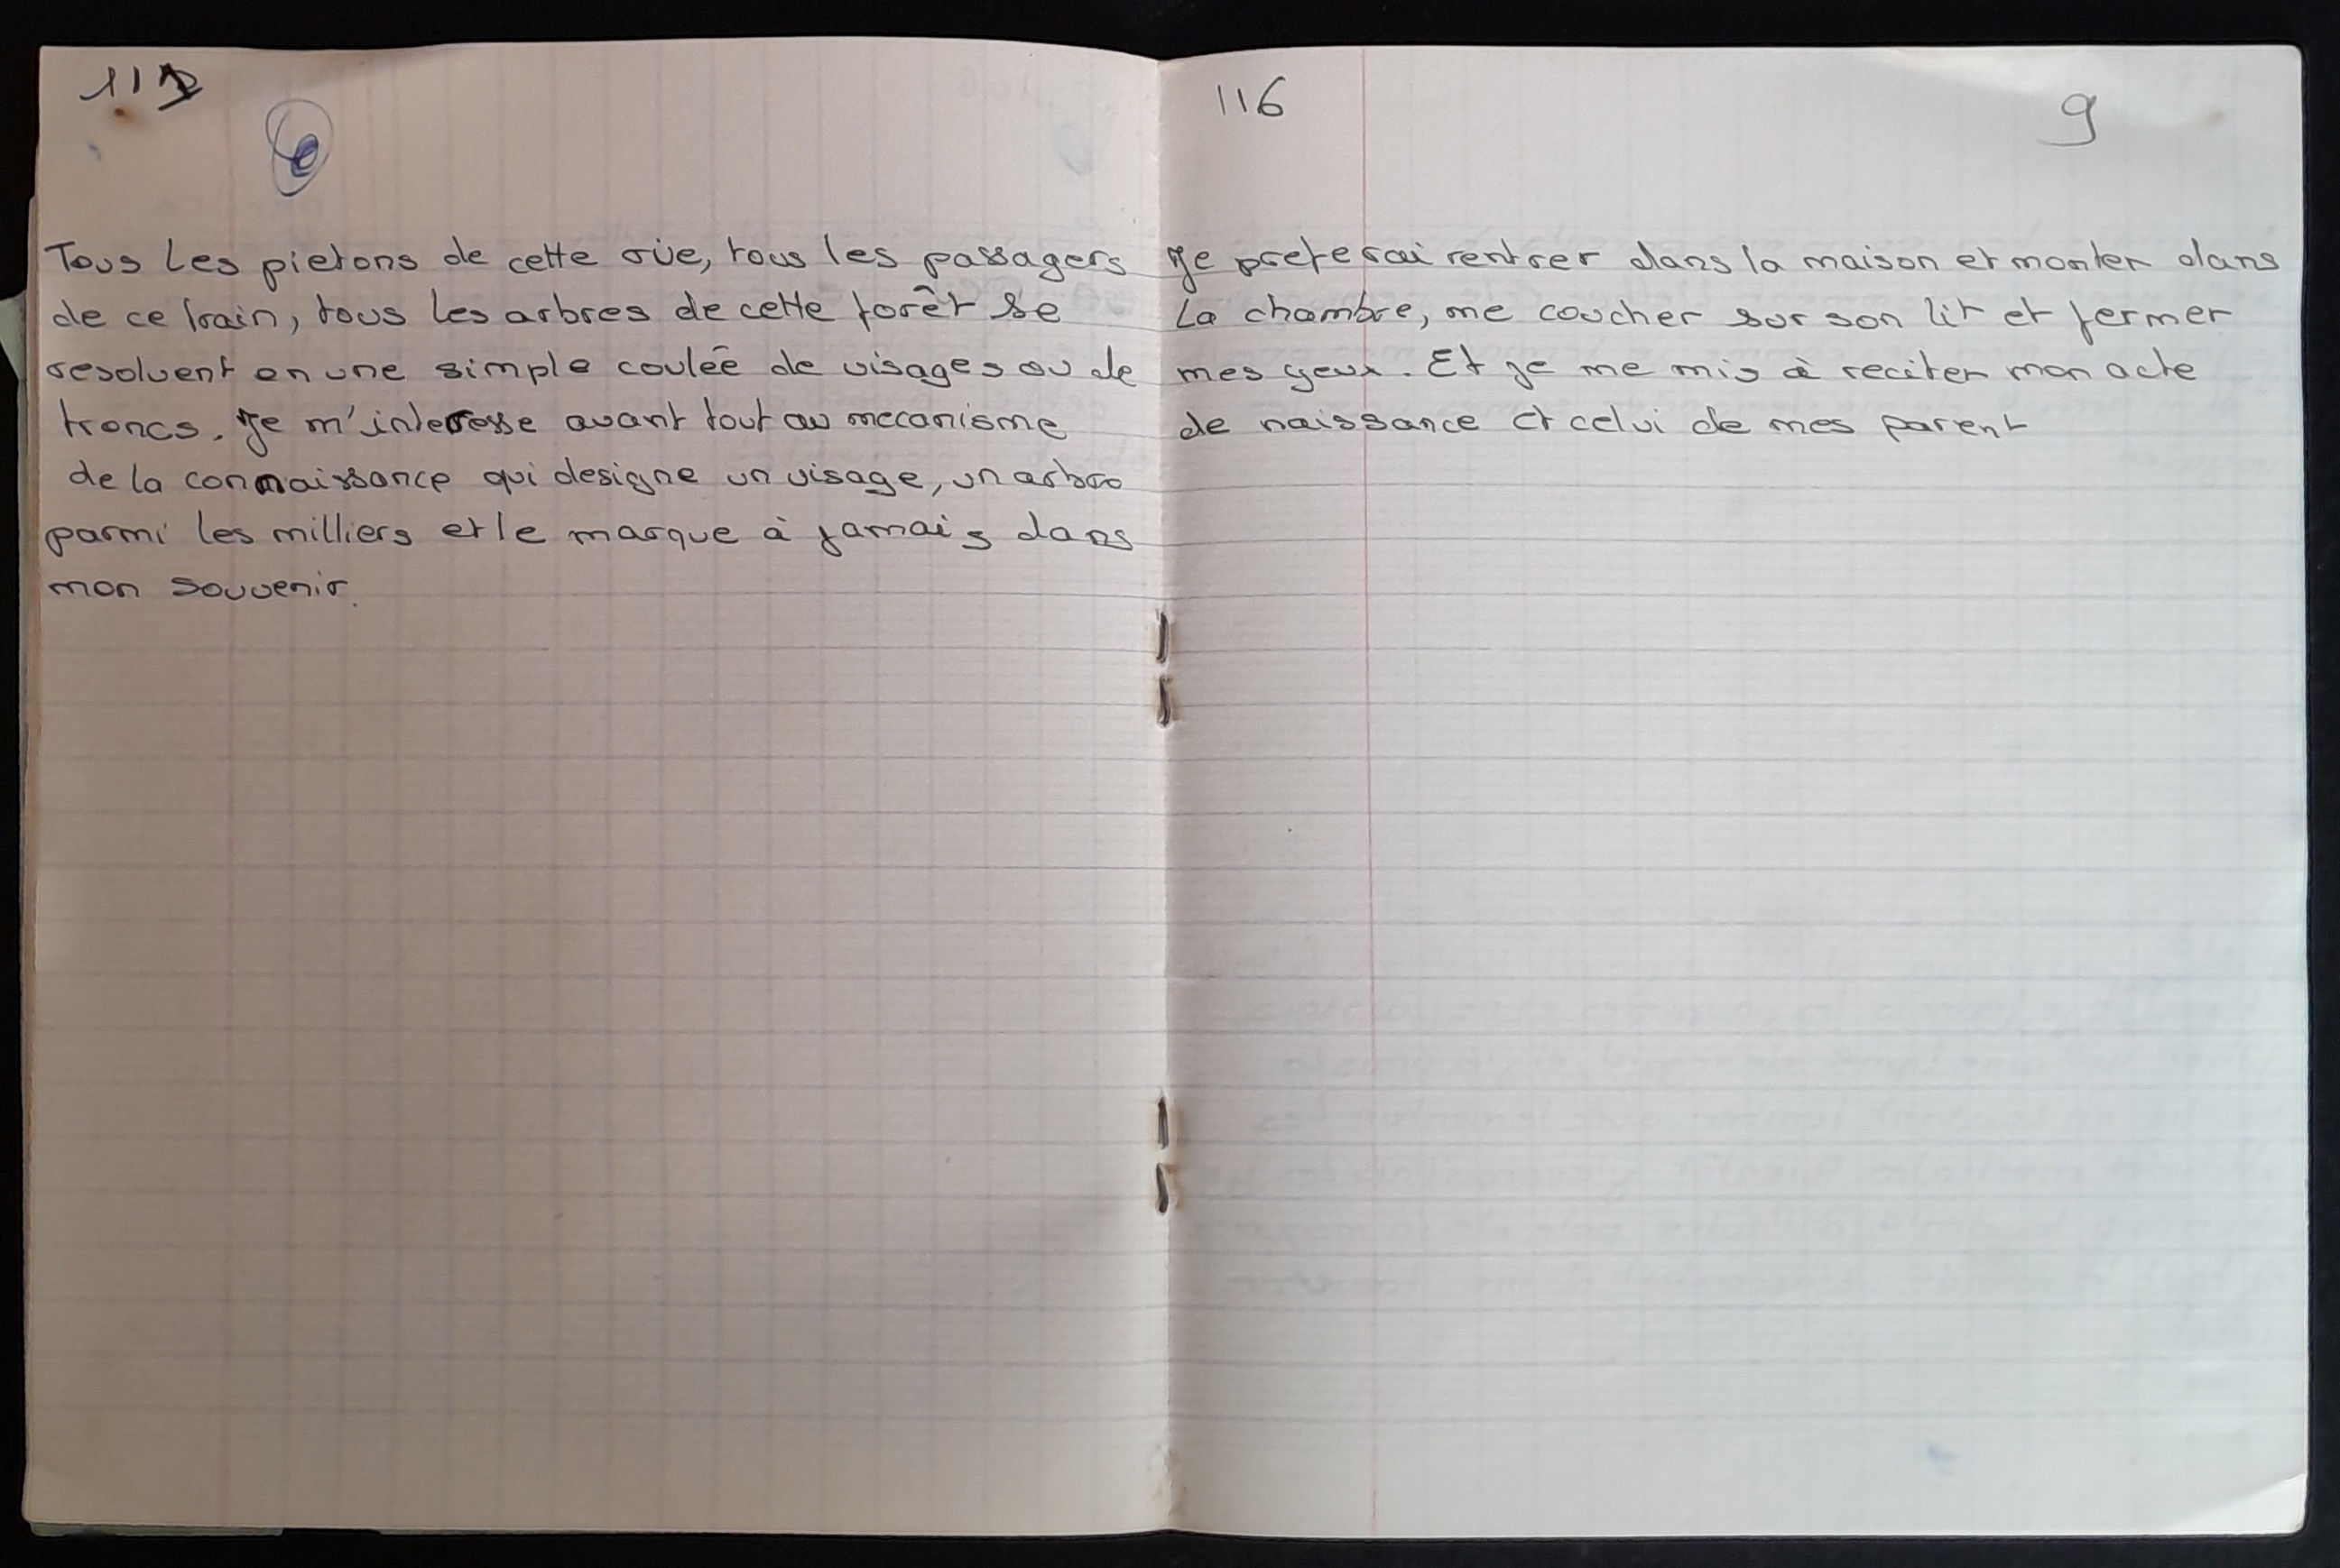 6
Tous les pietons de cette rüe, tous les passagers
de ce train, tous les arbres de cette forêt se
resolvent en une simple coulée de visages ou de
troncs. Je m'interesse avant tout au mecanisme
de la connaissance qui designe un visage, un arbre
parmi les milliers et le marque à jamais dans
mon souvenir.
116
9
Je preferai rentrer dans la maison et monter dans
La chambre, me coucher sur son lit et fermer
mes yeux. Et je me mis à reciter mon acte
de naissance et celui de mes parent